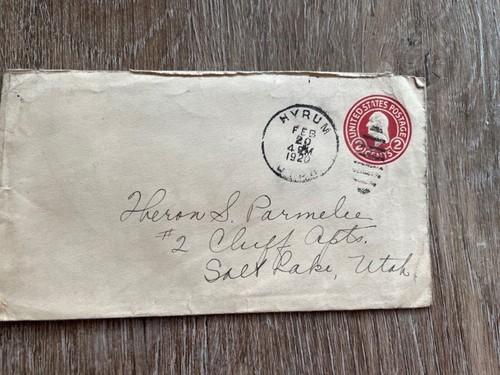 HYRUM
FEB
20
4 PM
1920
UTAH
UNITED STATES POSTAGE
2 CENTS 2
Theron S. Parmelee
#2 Cluff Apts.
Salt Lake, Utah